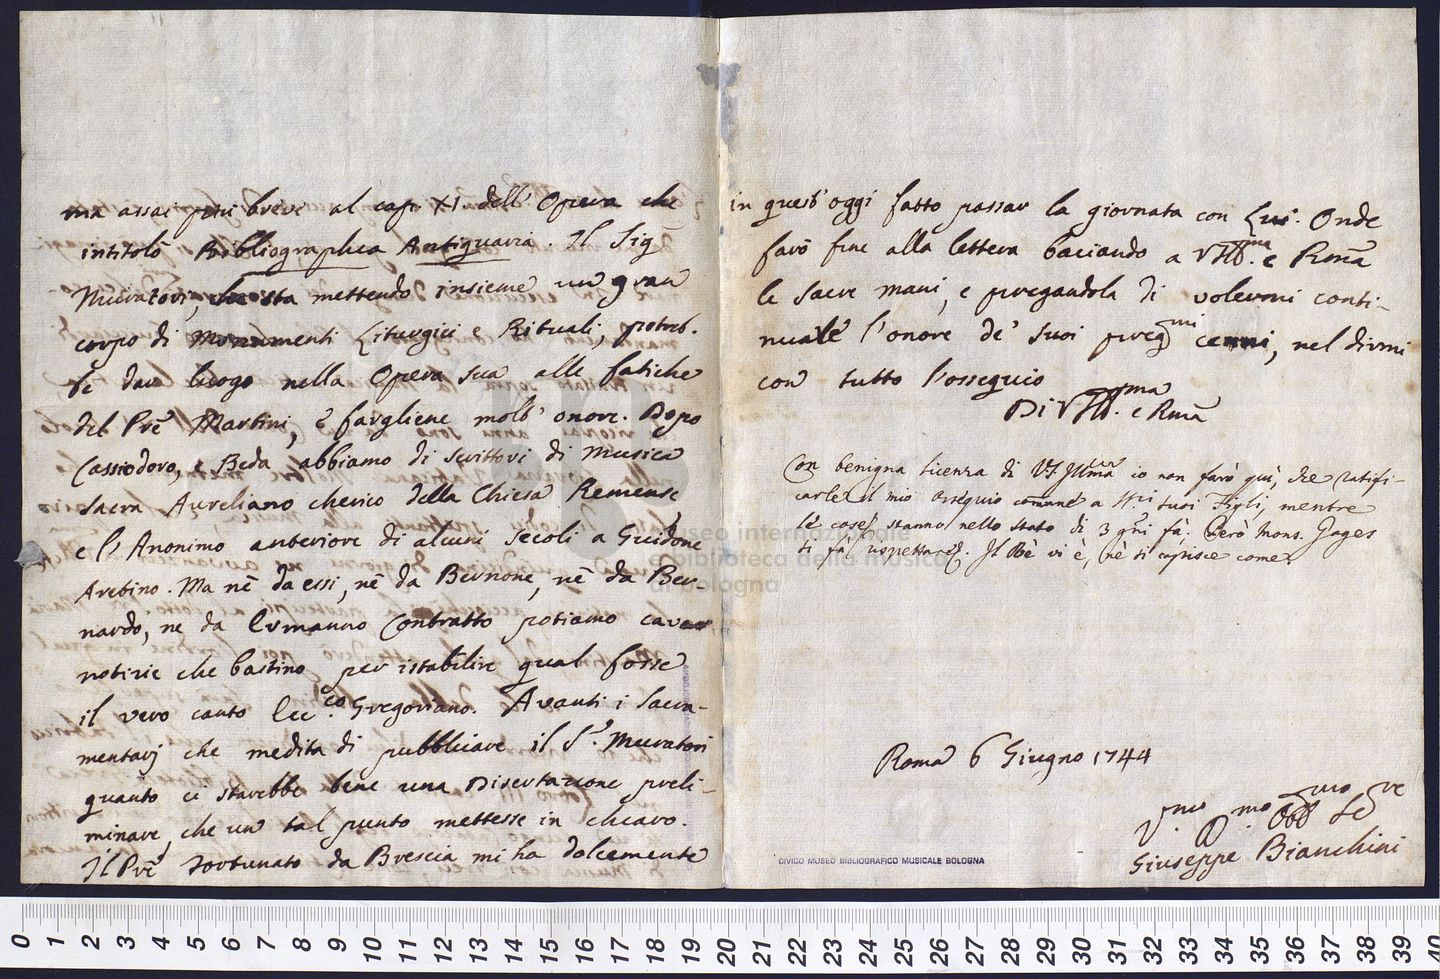 ma assai più brevi al cap XI. dell' Opera che
intitolò Bibliographia Antiquaria. Il Sig.
Muratori, che sta mettendo insieme un gran
corpo di Monumenti Liturgici e Rituali, potreb-
be dare luogo nella Opera sua alle fatiche
del Prē Martini, e fargliene molt' onore. Dopo
Cassiodoro, e Beda, abbiamo di Scrittori di Musica
sacra Aureliano cherico della Chiesa Remense
e l'Anonimo anteriore di alcuni Secoli a Guidone
Aretino. Ma nè da essi, nè da Bernone, nè da Ber-
nardo, ne da Ermanno Contratto potiamo cavar
notizie che bastino per istabilire qual fosse
il vero canto Ecc.co Gregoriano. Avanti i Sacra-
mentarj che medita di pubblicare il S.r Muratori
quanto ci starebbe bene una Disertazione preli-
minare, che un tal punto mettesse in chiaro.
Il Prē Fortunato da Brescia mi ha dolcemente
in quest' oggi fatto passar la giornata con Lui. Onde
farò fine alla lettera baciando a VS Ill.ma e Rmā
le sacre mani, e pregandola di volermi conti-
nuale l'onore de' suoi preg.mi cenni, nel dirmi
con tutto l'ossequio
Di VS Ill.ma e Rmā
Con benigna licenza di VS. Illma io non farò qui, che ratifi-
carle il mio ossequio comune a Sri suoi Figli, mentre
le cose stanno nello stato di 3 gni fà. Però Mons. Jages
si fà rispettare. Il Bè vi è, nè si capisce come.
Roma 6 Giugno 1744
Giuseppe Bianchini
museo internazionale
e biblioteca della musica
di bologna
CIVICO MUSEO BIBLIOGRAFICO MUSICALE BOLOGNA
0 1 2 3 4 5 6 7 8 9 10 11 12 13 14 15 16 17 18 19 20 21 22 23 24 25 26 27 28 29 30 31 32 33 34 35 36 37 38 39 40